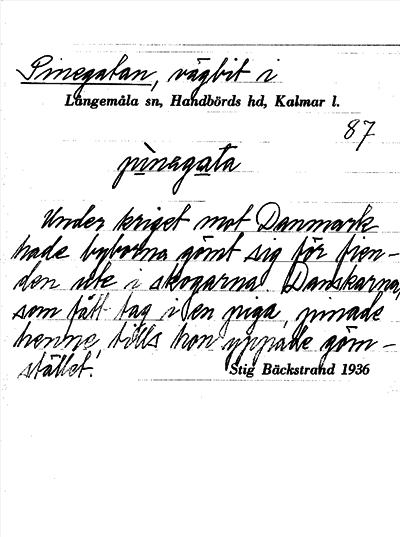 Pinegatan, vägbit i
Långemåla sn, Handbörds hd, Kalmar l.
87
pinagata
Under kriget mot Danmark
hade byborna gömt sig för fien-
den ute i skogarna. Danskarna,
som fått tag i en piga, pinade
henne, tills hon uppade göm-
stället.
Stig Bäckstrand 1936